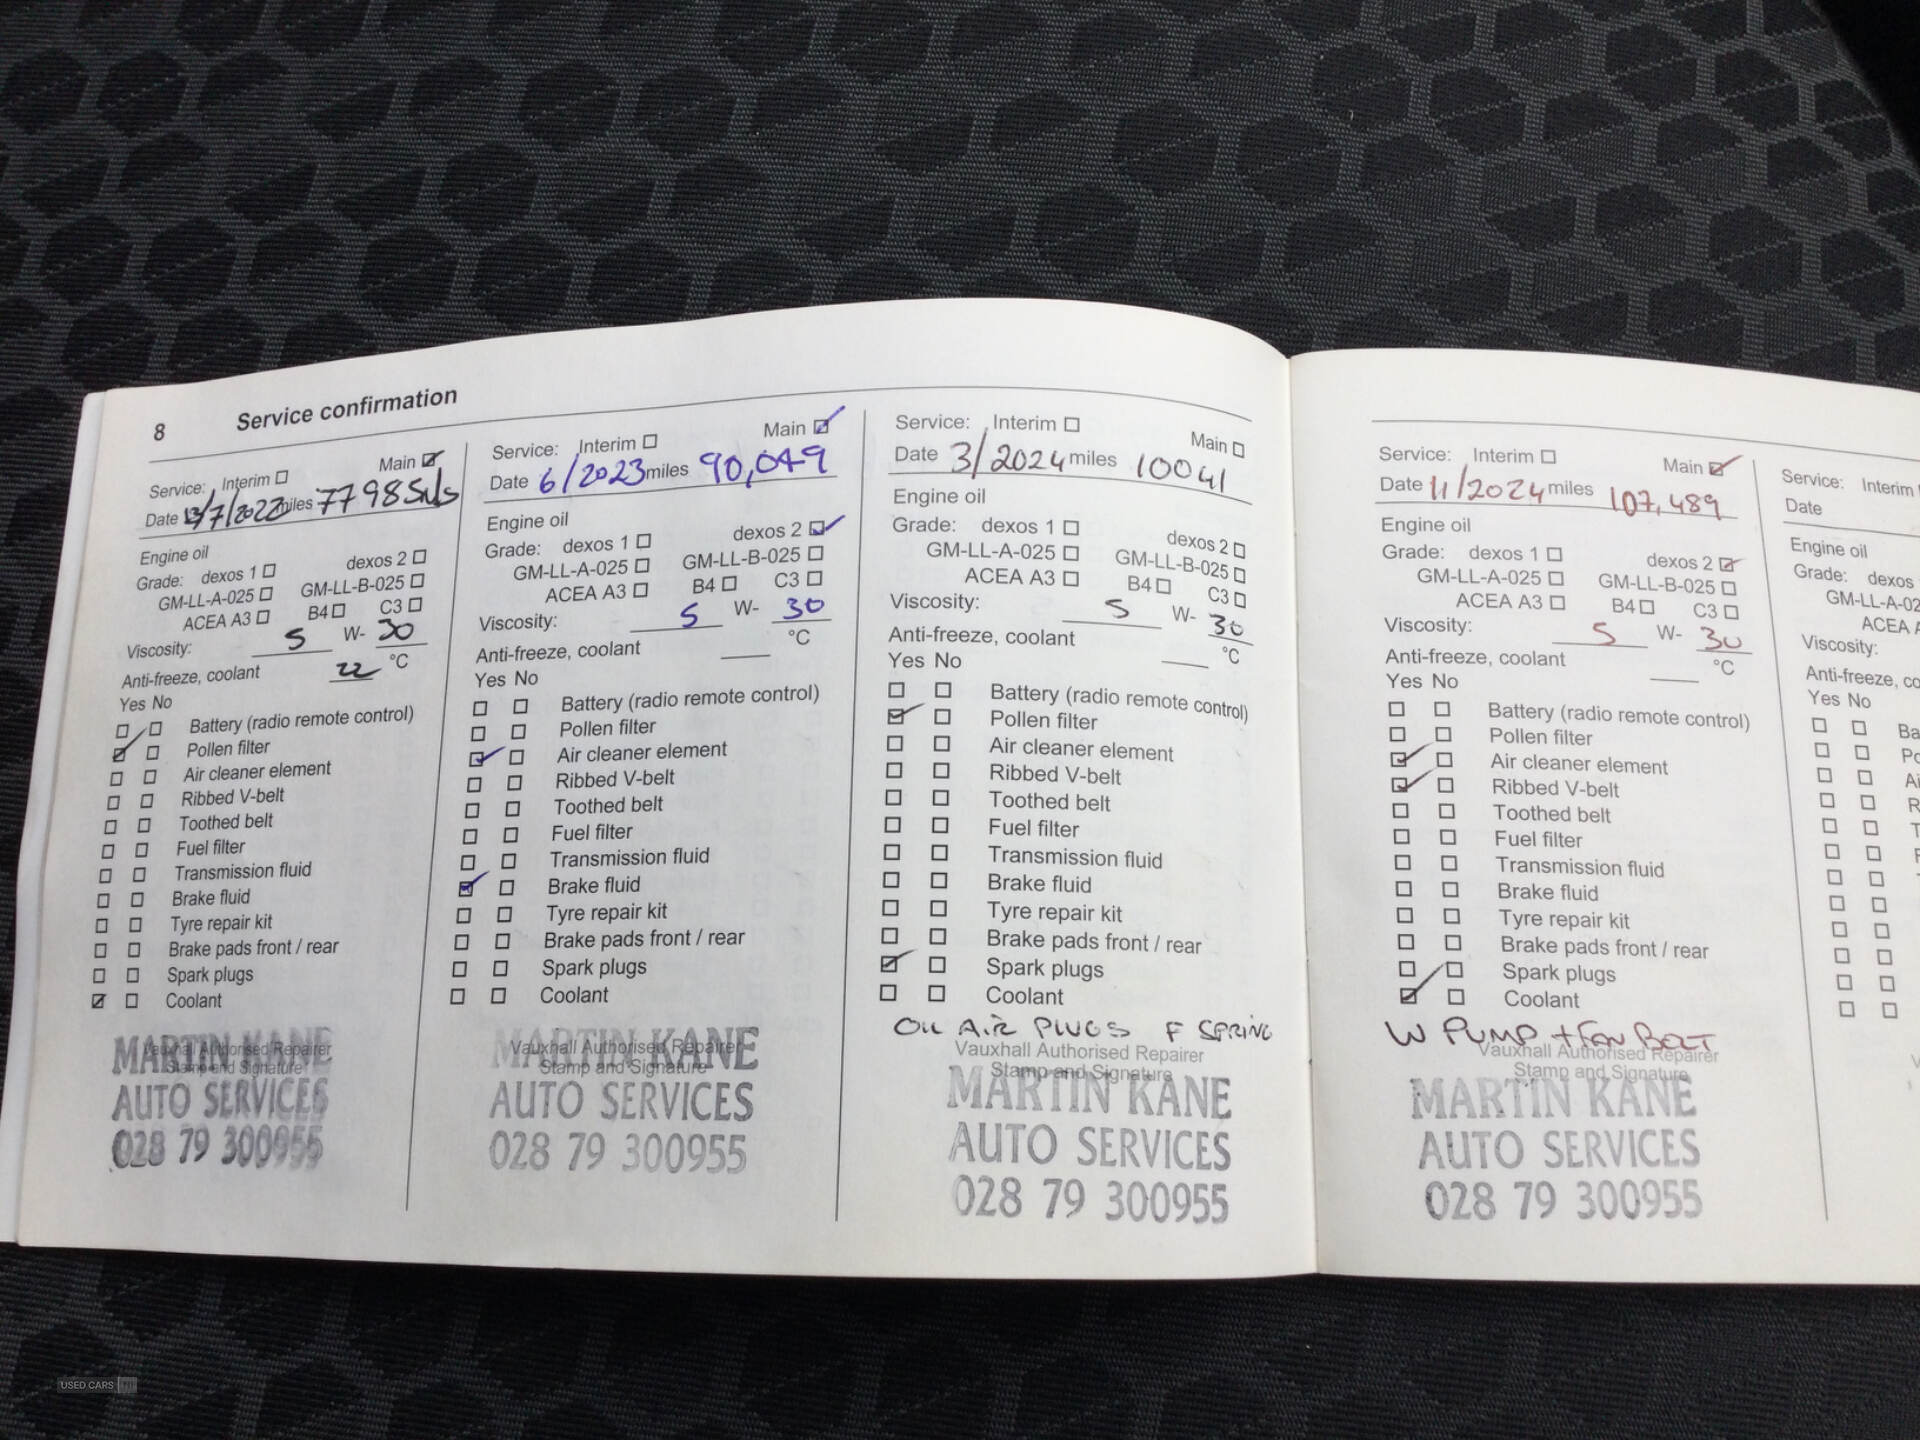 8 Service confirmation
Service: Interim Main
Date 13/7/2022 miles 77985mls
Engine oil
Grade: dexos 1 dexos 2
GM-LL-A-025 GM-LL-B-025
ACEA A3 B4 C3
Viscosity: 5 W- 30
Anti-freeze, coolant 22 °C
Yes No
Battery (radio remote control)
Pollen filter
Air cleaner element
Ribbed V-belt
Toothed belt
Fuel filter
Transmission fluid
Brake fluid
Tyre repair kit
Brake pads front / rear
Spark plugs
Coolant
Vauxhall Authorised Repairer
Stamp and Signature
MARTIN KANE
AUTO SERVICES
028 79 300955
Service: Interim Main
Date 6/2023 miles 90,049
Engine oil
Grade: dexos 1 dexos 2
GM-LL-A-025 GM-LL-B-025
ACEA A3 B4 C3
Viscosity: 5 W- 30
Anti-freeze, coolant °C
Yes No
Battery (radio remote control)
Pollen filter
Air cleaner element
Ribbed V-belt
Toothed belt
Fuel filter
Transmission fluid
Brake fluid
Tyre repair kit
Brake pads front / rear
Spark plugs
Coolant
Vauxhall Authorised Repairer
Stamp and Signature
MARTIN KANE
AUTO SERVICES
028 79 300955
Service: Interim Main
Date 3/2024 miles 10041
Engine oil
Grade: dexos 1 dexos 2
GM-LL-A-025 GM-LL-B-025
ACEA A3 B4 C3
Viscosity: 5 W- 30
Anti-freeze, coolant °C
Yes No
Battery (radio remote control)
Pollen filter
Air cleaner element
Ribbed V-belt
Toothed belt
Fuel filter
Transmission fluid
Brake fluid
Tyre repair kit
Brake pads front / rear
Spark plugs
Coolant
OIL AIR PLUGS F SPRING
Vauxhall Authorised Repairer
Stamp and Signature
MARTIN KANE
AUTO SERVICES
028 79 300955
Service: Interim Main
Date 11/2024 miles 107,489
Engine oil
Grade: dexos 1 dexos 2
GM-LL-A-025 GM-LL-B-025
ACEA A3 B4 C3
Viscosity: 5 W- 30
Anti-freeze, coolant °C
Yes No
Battery (radio remote control)
Pollen filter
Air cleaner element
Ribbed V-belt
Toothed belt
Fuel filter
Transmission fluid
Brake fluid
Tyre repair kit
Brake pads front / rear
Spark plugs
Coolant
W PUMP + FAN BELT
Vauxhall Authorised Repairer
Stamp and Signature
MARTIN KANE
AUTO SERVICES
028 79 300955
Service: Interim
Date
Engine oil
Grade: dexos
GM-LL-A-02
ACEA A
Viscosity:
Anti-freeze, co
Yes No
USED CARS NI